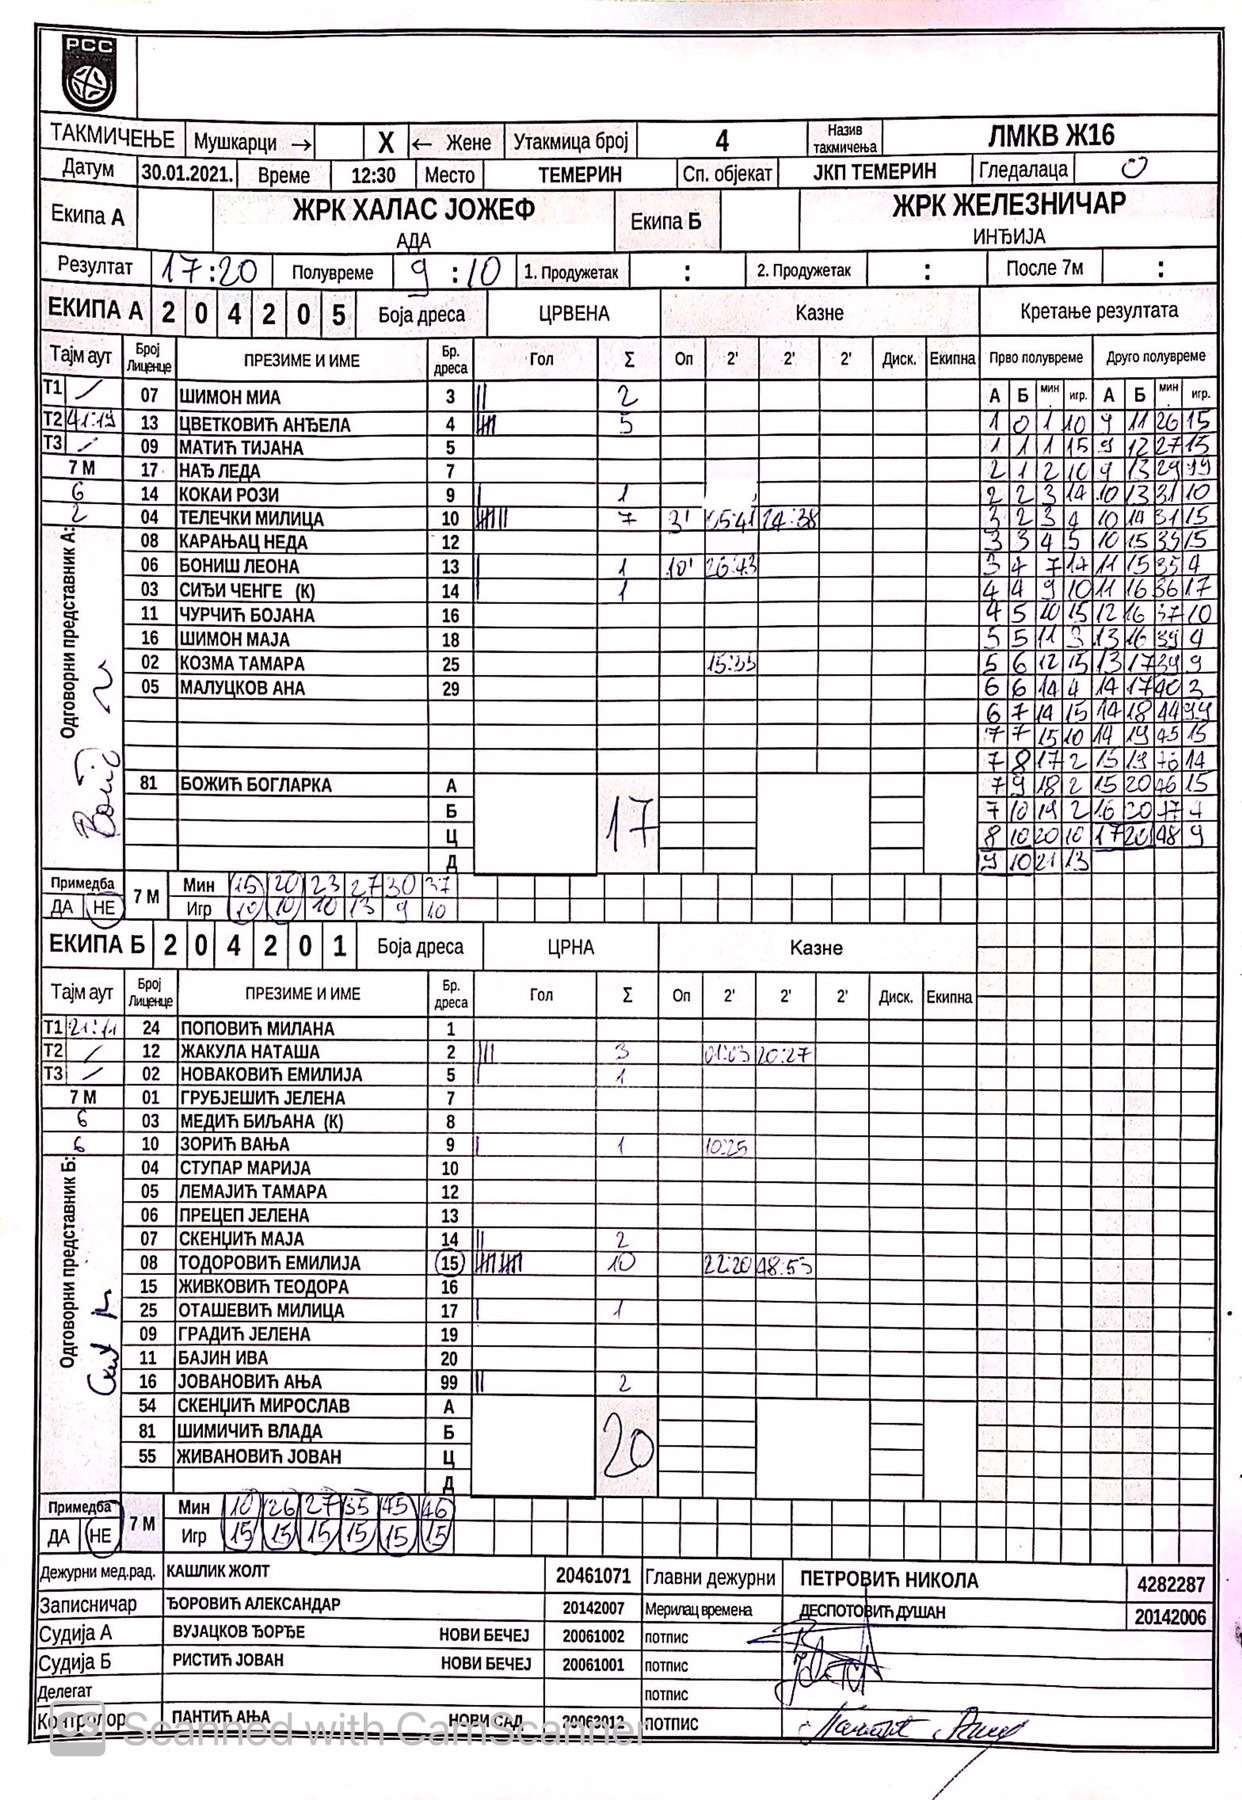 РСС
ТАКМИЧЕЊЕ Мушкарци → X ← Жене Утакмица број 4 Назив такмичења ЛМКВ Ж16
Датум 30.01.2021. Време 12:30 Место ТЕМЕРИН Сп. објекат ЈКП ТЕМЕРИН Гледалаца 0
Екипа А ЖРК ХАЛАС ЈОЖЕФ АДА Екипа Б ЖРК ЖЕЛЕЗНИЧАР ИНЂИЈА
Резултат 17:20 Полувреме 9:10 1. Продужетак : 2. Продужетак : После 7м :
ЕКИПА А 2 0 4 2 0 5 Боја дреса ЦРВЕНА Казне Кретање резултата
Тајм аут Број Лиценце ПРЕЗИМЕ И ИМЕ Бр. дреса Гол Σ Оп 2' 2' 2' Диск. Екипна Прво полувреме Друго полувреме
T1 / 07 ШИМОН МИА 3 || 2 А Б мин игр. А Б мин игр.
T2 41:19 13 ЦВЕТКОВИЋ АНЂЕЛА 4 5 1 0 1 10 9 11 26 15
T3 / 09 МАТИЋ ТИЈАНА 5 1 1 1 15 9 12 27 15
7 М 17 НАЂ ЛЕДА 7 2 1 2 10 9 13 29 99
6 14 КОКАИ РОЗИ 9 | 1 2 2 3 14 10 13 31 10
2 04 ТЕЛЕЧКИ МИЛИЦА 10 7 3' 05:41 24:38 3 2 3 4 10 14 31 15
08 КАРАЊАЦ НЕДА 12 3 3 4 5 10 15 35 15
06 БОНИШ ЛЕОНА 13 | 1 10' 26:43 3 4 7 14 11 15 35 4
03 СИЂИ ЧЕНГЕ (К) 14 | 1 4 4 9 10 11 16 36 17
11 ЧУРЧИЋ БОЈАНА 16 4 5 10 15 12 16 37 10
16 ШИМОН МАЈА 18 5 5 11 3 13 16 39 4
02 КОЗМА ТАМАРА 25 15:33 5 6 12 15 13 17 39 9
05 МАЛУЦКОВ АНА 29 6 6 14 4 14 17 40 3
6 7 14 15 14 18 44 99
7 7 15 10 14 19 45 15
7 8 17 2 15 19 46 14
81 БОЖИЋ БОГЛАРКА А 7 9 18 2 15 20 46 15
Б 7 10 19 2 16 20 47 4
Ц 17 8 10 20 10 17 20 48 9
Д 9 10 21 13
Одговорни представник А:
Примедба ДА НЕ 7 М Мин 15 20 23 27 30 37
Игр 10 10 10 13 9 10
ЕКИПА Б 2 0 4 2 0 1 Боја дреса ЦРНА Казне
Тајм аут Број Лиценце ПРЕЗИМЕ И ИМЕ Бр. дреса Гол Σ Оп 2' 2' 2' Диск. Екипна
T1 21:11 24 ПОПОВИЋ МИЛАНА 1
T2 / 12 ЖАКУЛА НАТАША 2 ||| 3 01:03 20:27
T3 / 02 НОВАКОВИЋ ЕМИЛИЈА 5 | 1
7 М 01 ГРУБЈЕШИЋ ЈЕЛЕНА 7
6 03 МЕДИЋ БИЉАНА (К) 8
6 10 ЗОРИЋ ВАЊА 9 | 1 10:25
04 СТУПАР МАРИЈА 10
05 ЛЕМАЈИЋ ТАМАРА 12
06 ПРЕЦЕП ЈЕЛЕНА 13
07 СКЕНЏИЋ МАЈА 14 || 2
08 ТОДОРОВИЋ ЕМИЛИЈА 15 10 22:20 48:53
15 ЖИВКОВИЋ ТЕОДОРА 16
25 ОТАШЕВИЋ МИЛИЦА 17 | 1
09 ГРАДИЋ ЈЕЛЕНА 19
11 БАЈИН ИВА 20
16 ЈОВАНОВИЋ АЊА 99 || 2
54 СКЕНЏИЋ МИРОСЛАВ А
81 ШИМИЧИЋ ВЛАДА Б
55 ЖИВАНОВИЋ ЈОВАН Ц 20
Д
Одговорни представник Б:
Примедба ДА НЕ 7 М Мин 10 26 27 35 45 46
Игр 15 15 15 15 15 15
Дежурни мед.рад. КАШЛИК ЖОЛТ 20461071 Главни дежурни ПЕТРОВИЋ НИКОЛА 4282287
Записничар ЂОРОВИЋ АЛЕКСАНДАР 20142007 Мерилац времена ДЕСПОТОВИЋ ДУШАН 20142006
Судија А ВУЈАЦКОВ ЂОРЂЕ НОВИ БЕЧЕЈ 20061002 потпис
Судија Б РИСТИЋ ЈОВАН НОВИ БЕЧЕЈ 20061001 потпис
Делегат потпис
Контролор ПАНТИЋ АЊА НОВИ САД 20063012 потпис
CS Scanned with CamScanner